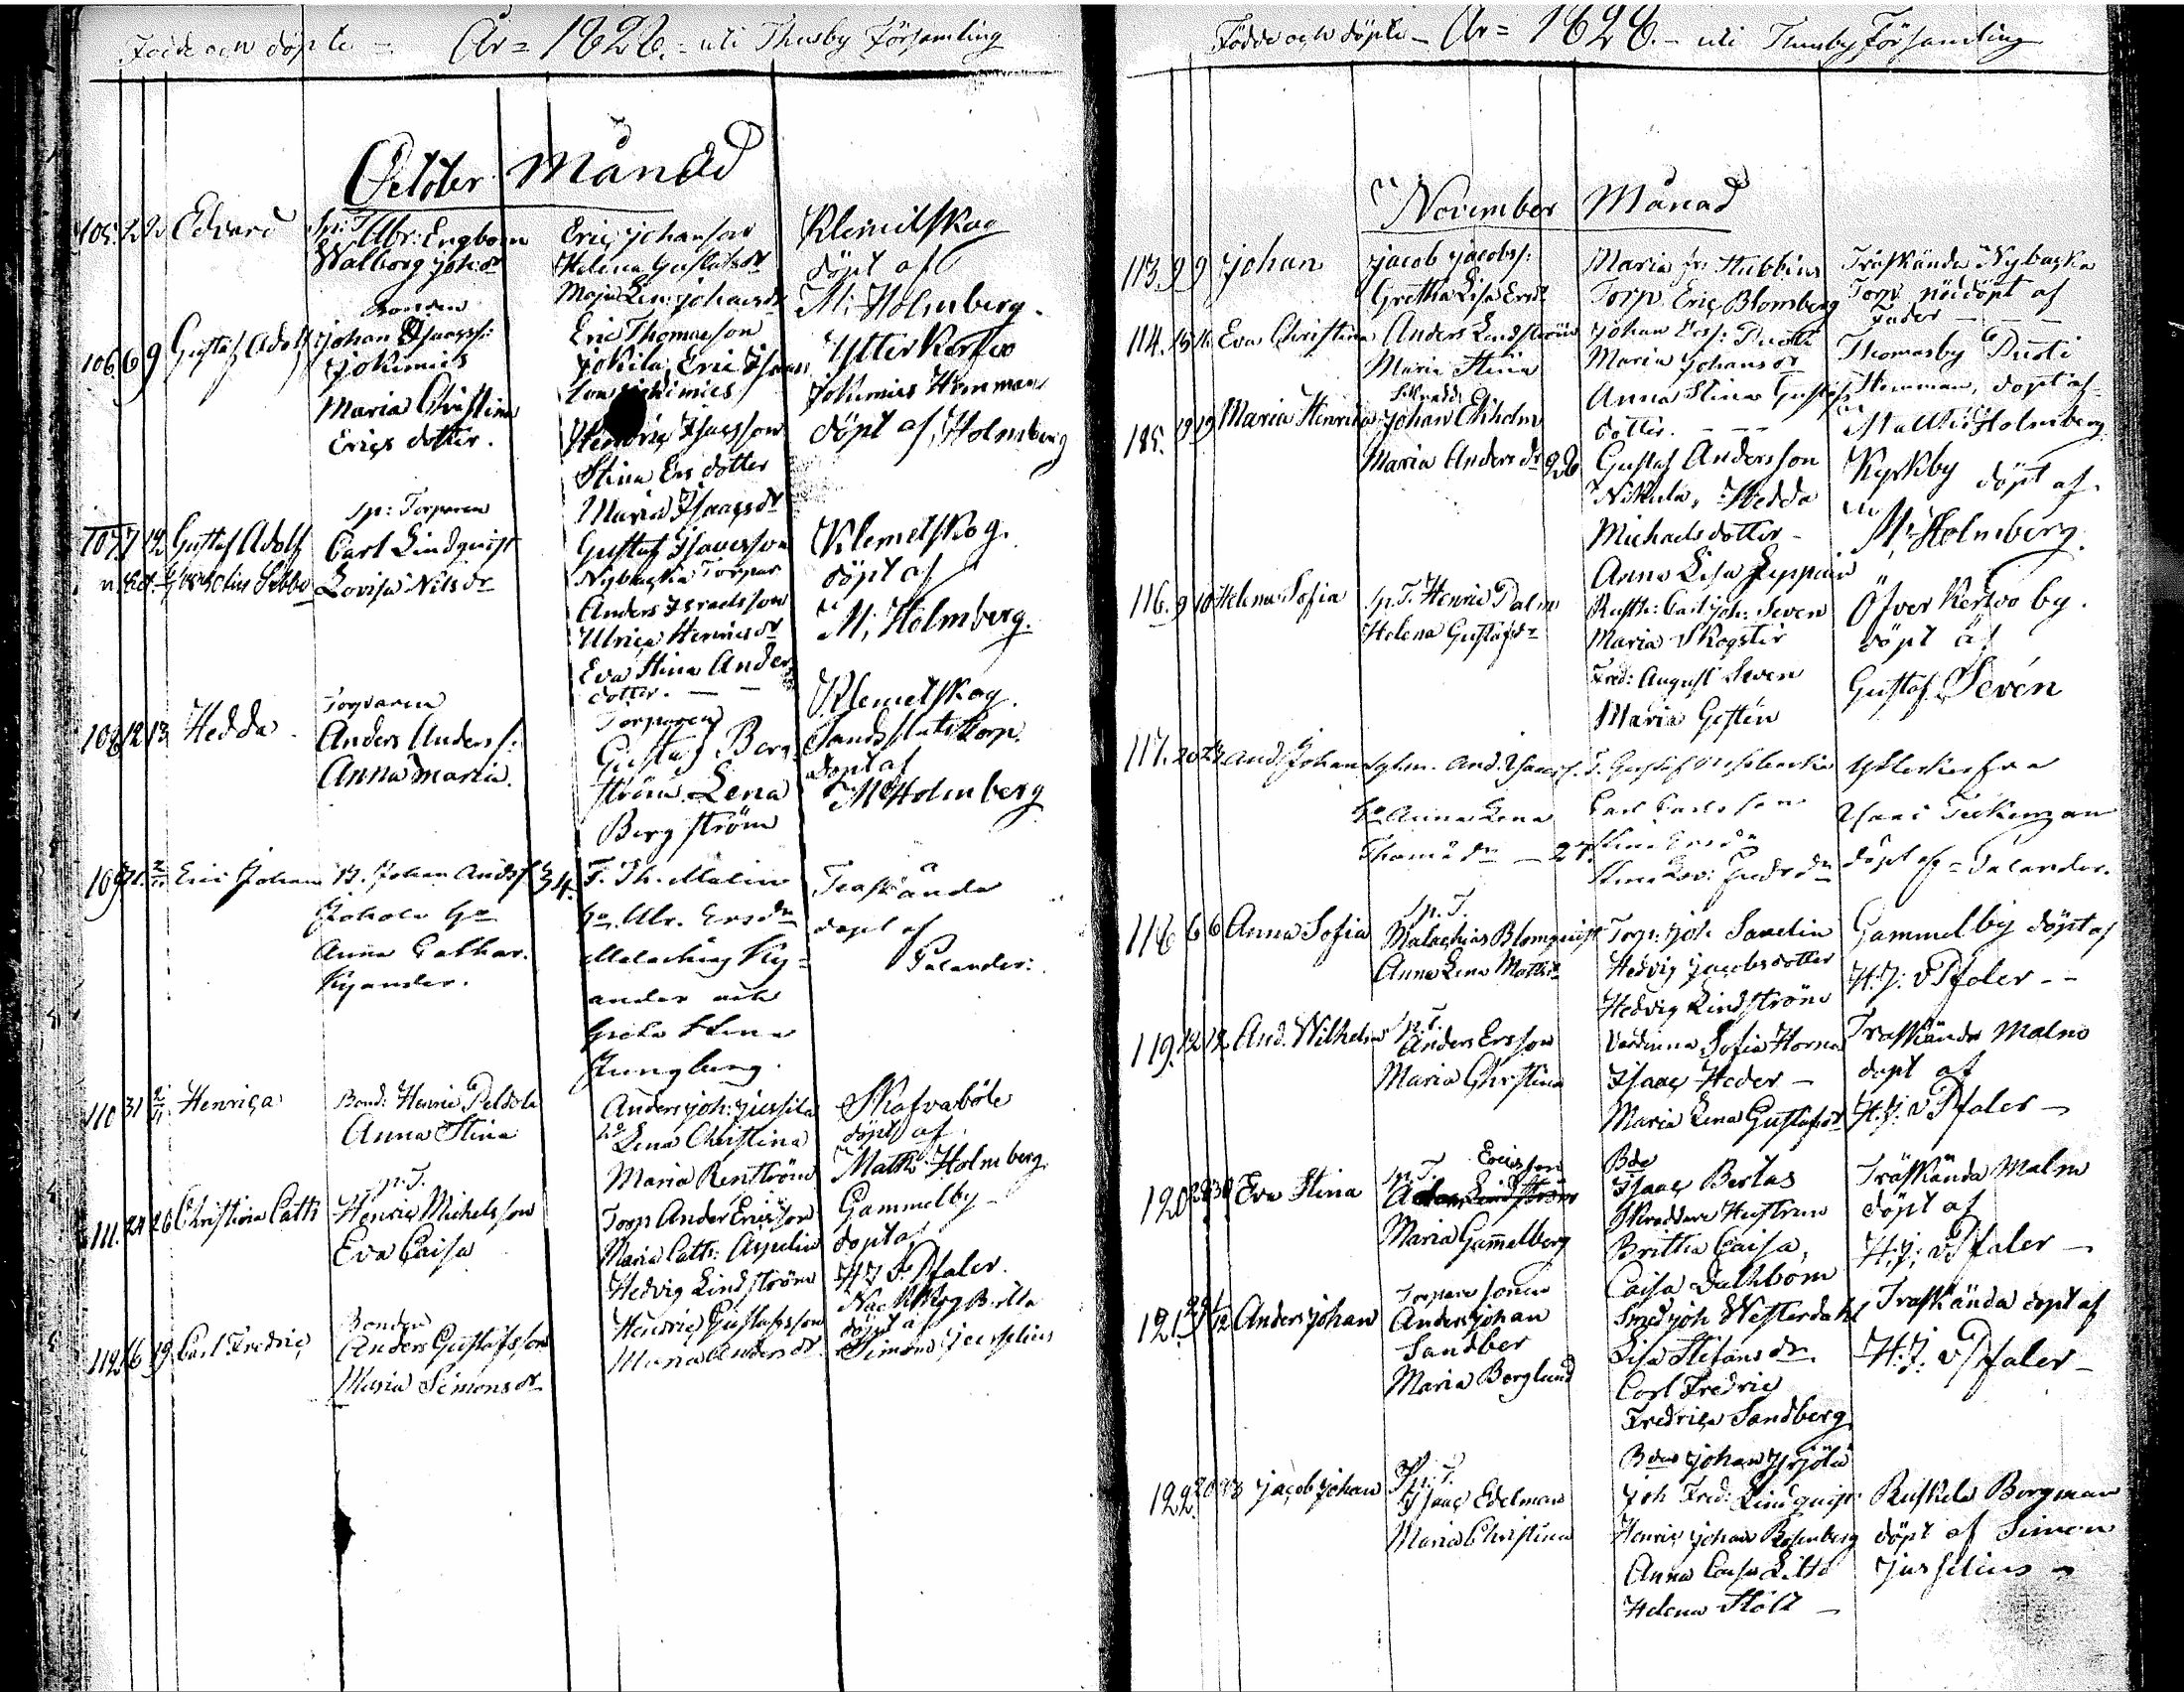 Födde och döpte - År = 1828. - uti Thusby Församling
October Månad
105. 2 2 Edvard
Sp: T.
Abr: Engbom
Walborg Joh dr
Eric Johansson
Helena Gustafs dr
Maja Len: Johans dr
Klemetskog
döpt af
M: Holmberg.
106. 6 9 Gustaf Adolf
Bonden
Johan Isaacss:
Jokimies
Maria Christina
Erics dotter.
Eric Thomasson
Jokila, Eric Isaacs
son Jokimies
Henric Isacsson
Stina Ers dotter
Maria Isaacs dr
Ytter Kerfvo
Jokimies Hemman
döpt af, Holmberg
107. 7 12 Gustaf Adolf
Sp: Torparen
Carl Lindqvist
Lovisa Nils dr
Gustaf Isacsson
Nybacka Torpar
Anders Israelsson
Ulrica Henrics dr
Eva Stina Anders
dotter. — —
Klemetskog.
döpt af
M: Holmberg.
108 12 13 Hedda
Torparen
Anders Anderss:
Anna Maria.
Torparen
Gustaf Berg
ström Lena
Bergström
Klemetskog.
döpt af
M Holmberg
109 Eric Johan
B. Johan Andss 34.
Anna Cathar.
Kyander.
T. Th. Malin
Malachias Ky=
ander och
Greta Stina
Ljungberg.
Träskända
döpt af
Palander:
110 31 Henrica
Bond: Henric Peldola
Anna Stina
Anders Joh: Jussila
Lena Christina
Maria Renström
Skafvaböle
döpt af
Math: Holmberg
111. 24 26 Christina Cath:
Sp. T.
Henric Michelsson
Eva Caisa
Torp Ander Ericsson
Maria Cath: Aspelin
Hedvig Lindström
Gammelby -
döpt af
H J v Pfaler.
112. 16 19. Carl Fredric
Bonden
Anders Gustafsson
Maria Simons dr
Henric Gustafsson
Maria Anders dr
döpt af
Simon Juselius
Födde och döpte - År = 1828. - uti Thusby Församling
November Månad
113. 9 9 Johan
Jacob Jacobss:
Gretha Lisa Ers dr
Maria Hubbins
Torp. Eric Blomberg
Träskända Nybacka
Torp nöddöpt af
Fader — — —
114. 15 16. Eva Christina
Anders Lindström
Maria Stina
Johan Erss: Puosti
Maria Johans dr
Anna Stina Gustafs
dotter. - - -
Thomasby Puosti
Hemman, döpt af
Math: Holmberg
115. 19 19 Maria Henrica
Skradd:
Johan Ekholm
Maria Anders dr 26
Gustaf Andersson
Nikula, Hedda
Michaels dotter -
Anna Lisa Seppäin
Kyrkby döpt af
M: Holmberg.
116. 9 10 Helena Sofia
Sp. T. Henric Palm
Helena Gustafs dr
Rusth: Carl Joh: Seven
Maria Skogster
Fred: August Seven
Maria Gestén
Öfver Kerfvo by.
döpt af
Gustaf Sevén
117. 20 23 And. Johan
Anna Lena
Thomæ dr - 27.
Carl Carlsson
Stina Ers dr
Ytterkerfva
döpt af = Palander.
118 6 6 Anna Sofia
Sp. T.
Malachias Blomqvist
Anna Lena Matts dr
Torp: Joh Savelin
Hedvig Jacobsdotter
Hedvig Lindström
Gammelby döpt af
H. J. v Pfaler - -
119. 12 12 And. Wilhelm
Sp. T.
Anders Ersson
Maria Christina
Värdinna Sofia Horna
Isaac Heder -
Maria Lena Gustafs dr
Träskända Malm
döpt af
H. J. v Pfaler -
120 29 30 Eva Stina
Sp. T. Ericsson
Maria Gammelberg
Bde
Isaac Bertas
Skräddare Hustrun
Britha Caisa,
Caisa Dahlbom
Träskända Malm
döpt af
H. J. v Pfaler -
121. Anders Johan
Torpare sonen
Anders Johan
Sandber
Maria Berglund
Smed Joh Westerdahl
Lisa Stefans dr.
Carl Fredric
Fredrica Sandberg
Träskända döpt af
H. J. v Pfaler -
122. Jacob Johan
Sp. T.
Isaac Edelman
Maria Christina
Bden Johan Yrjölä
Joh Fred: Lindqvist
Henric Johan Rosenberg
Anna Caisa Litto
Helena Stolt -
Ruskela Bergman
döpt af Simon
Juselius -